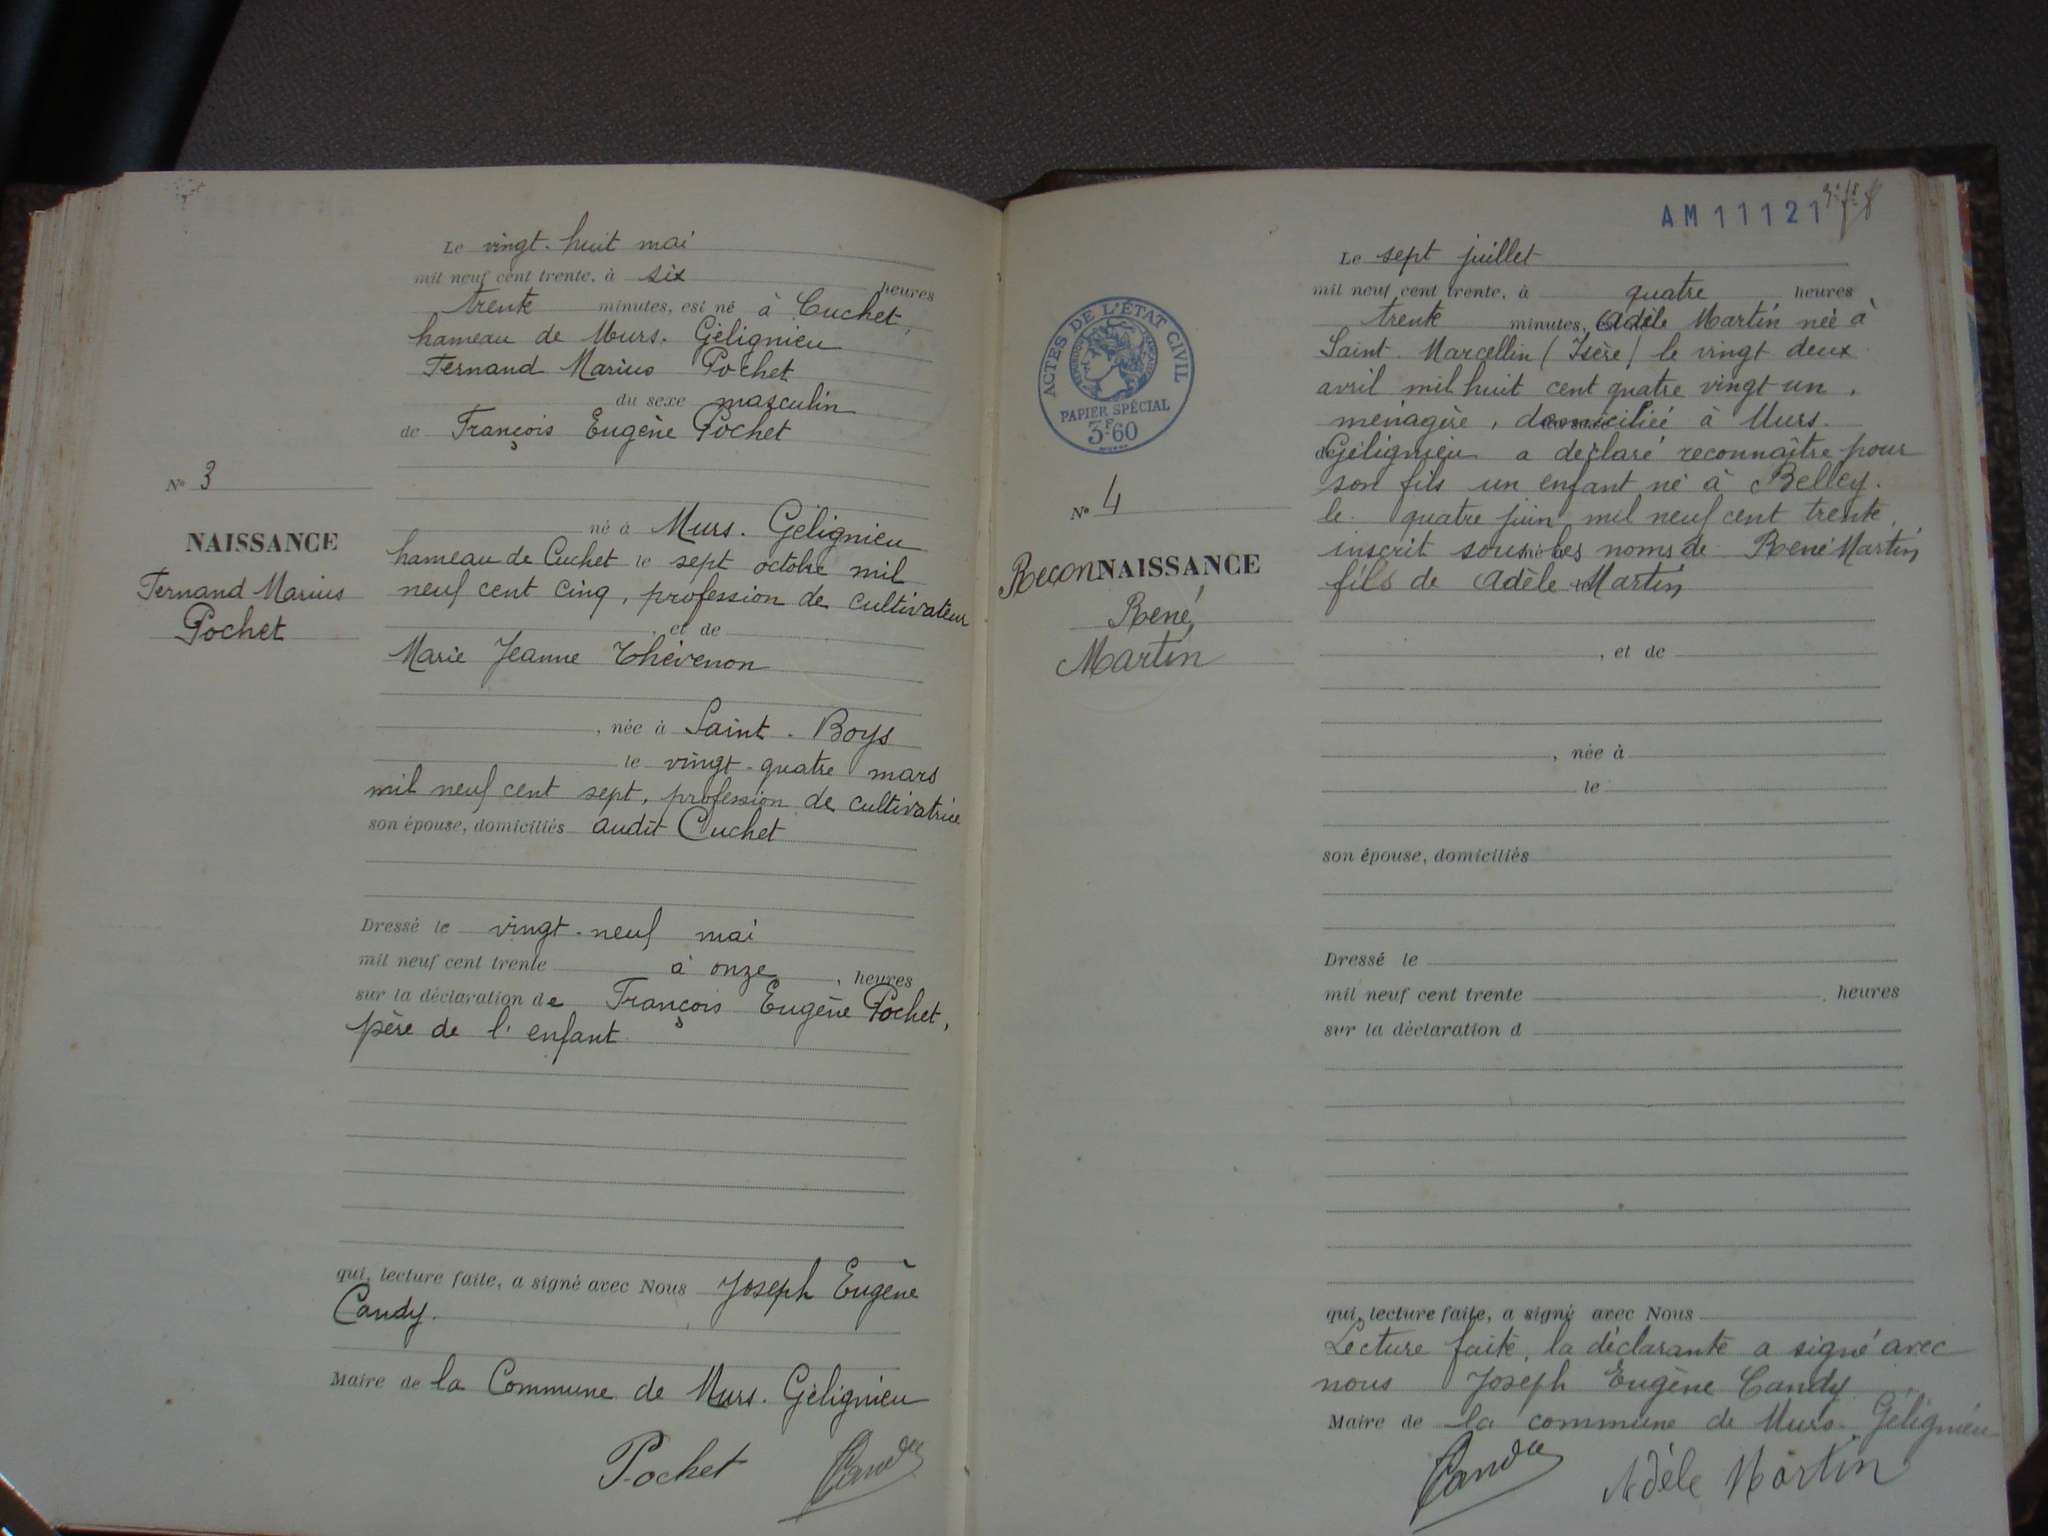 Le vingt-huit mai
mil neuf cent trente, à six heures
trente minutes, est né à Cuchet,
hameau de Murs-Gélignieu
Fernand Marius Pochet
du sexe masculin
de François Eugène Pochet
N° 3
NAISSANCE
Fernand Marius
Pochet
né à Murs-Gélignieu
hameau de Cuchet le sept octobre mil
neuf cent cinq, profession de cultivateur
et de
Marie Jeanne Thévenon
, née à Saint-Boys
le vingt-quatre mars
mil neuf cent sept, profession de cultivatrice
son épouse, domiciliés audit Cuchet
Dressé le vingt-neuf mai
mil neuf cent trente à onze, heures
sur la déclaration de François Eugène Pochet,
père de l'enfant
qui, lecture faite, a signé avec Nous Joseph Eugène
Candy.
Maire de la Commune de Murs-Gélignieu
Pochet Candy
AM 11121
ACTES DE L'ÉTAT CIVIL
PAPIER SPÉCIAL
3F60
N° 4
ReconNAISSANCE
René
Martin
Le sept juillet
mil neuf cent trente, à quatre heures
trente minutes, Adèle Martin née à
Saint-Marcellin (Isère) le vingt deux
avril mil huit cent quatre vingt un,
ménagère, domiciliée à Murs-
Gélignieu a déclaré reconnaître pour
son fils un enfant né à Belley.
le quatre juin mil neuf cent trente,
inscrit sous les noms de René Martin,
fils de Adèle Martin
, et de
, née à
le
son épouse, domiciliés
Dressé le
mil neuf cent trente , heures
sur la déclaration d
qui, lecture faite, a signé avec Nous
Lecture faite, la déclarante a signé avec
nous Joseph Eugène Candy
Maire de la commune de Murs-Gélignieu
Candy Adèle Martin